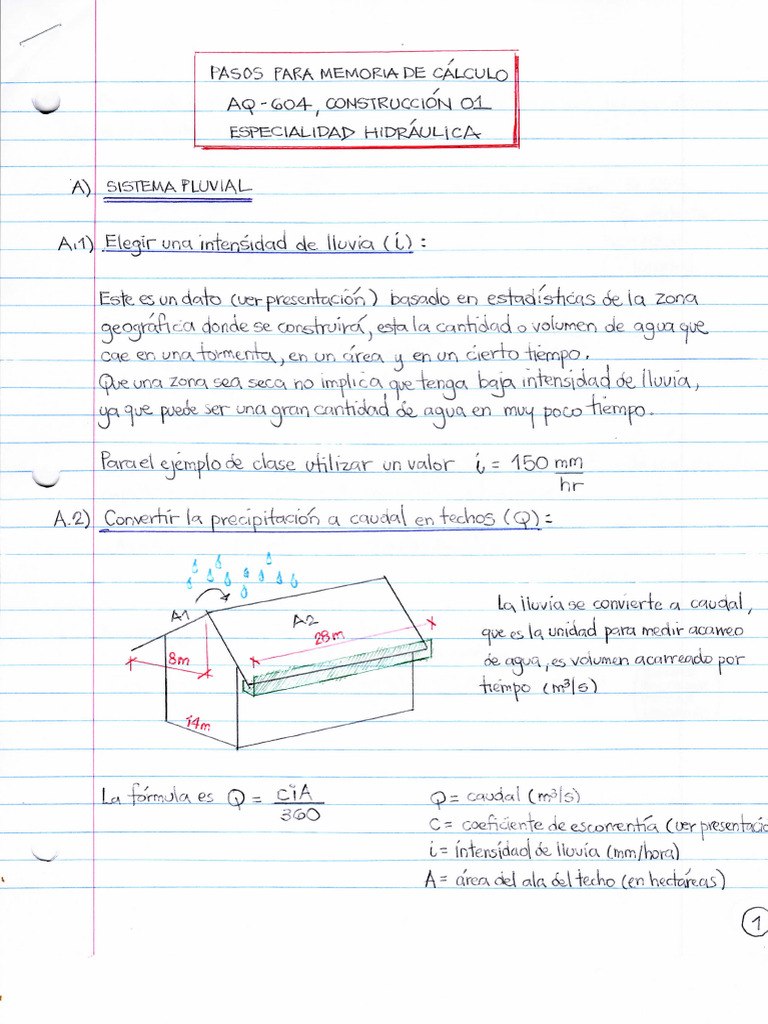 PASOS PARA MEMORIA DE CÁLCULO
AQ-604, CONSTRUCCIÓN 01
ESPECIALIDAD HIDRÁULICA
A) SISTEMA PLUVIAL
A.1) Elegir una intensidad de lluvia (i):
Este es un dato (ver presentación) basado en estadísticas de la zona
geográfica donde se construirá, esta la cantidad o volumen de agua que
cae en una tormenta, en un área y en un cierto tiempo.
Que una zona sea seca no implica que tenga baja intensidad de lluvia,
ya que puede ser una gran cantidad de agua en muy poco tiempo.
Para el ejemplo de clase utilizar un valor i = 150 mm/hr
A.2) Convertir la precipitación a caudal en techos (Q):
A1
A2
28m
8m
14m
La lluvia se convierte a caudal,
que es la unidad para medir acarreo
de agua, es volumen acarreado por
tiempo (m³/s)
La fórmula es Q = CiA/360
Q = caudal (m³/s)
C = coeficiente de escorrentía (ver presentació
i = intensidad de lluvia (mm/hora)
A = área del ala del techo (en hectáreas)
1